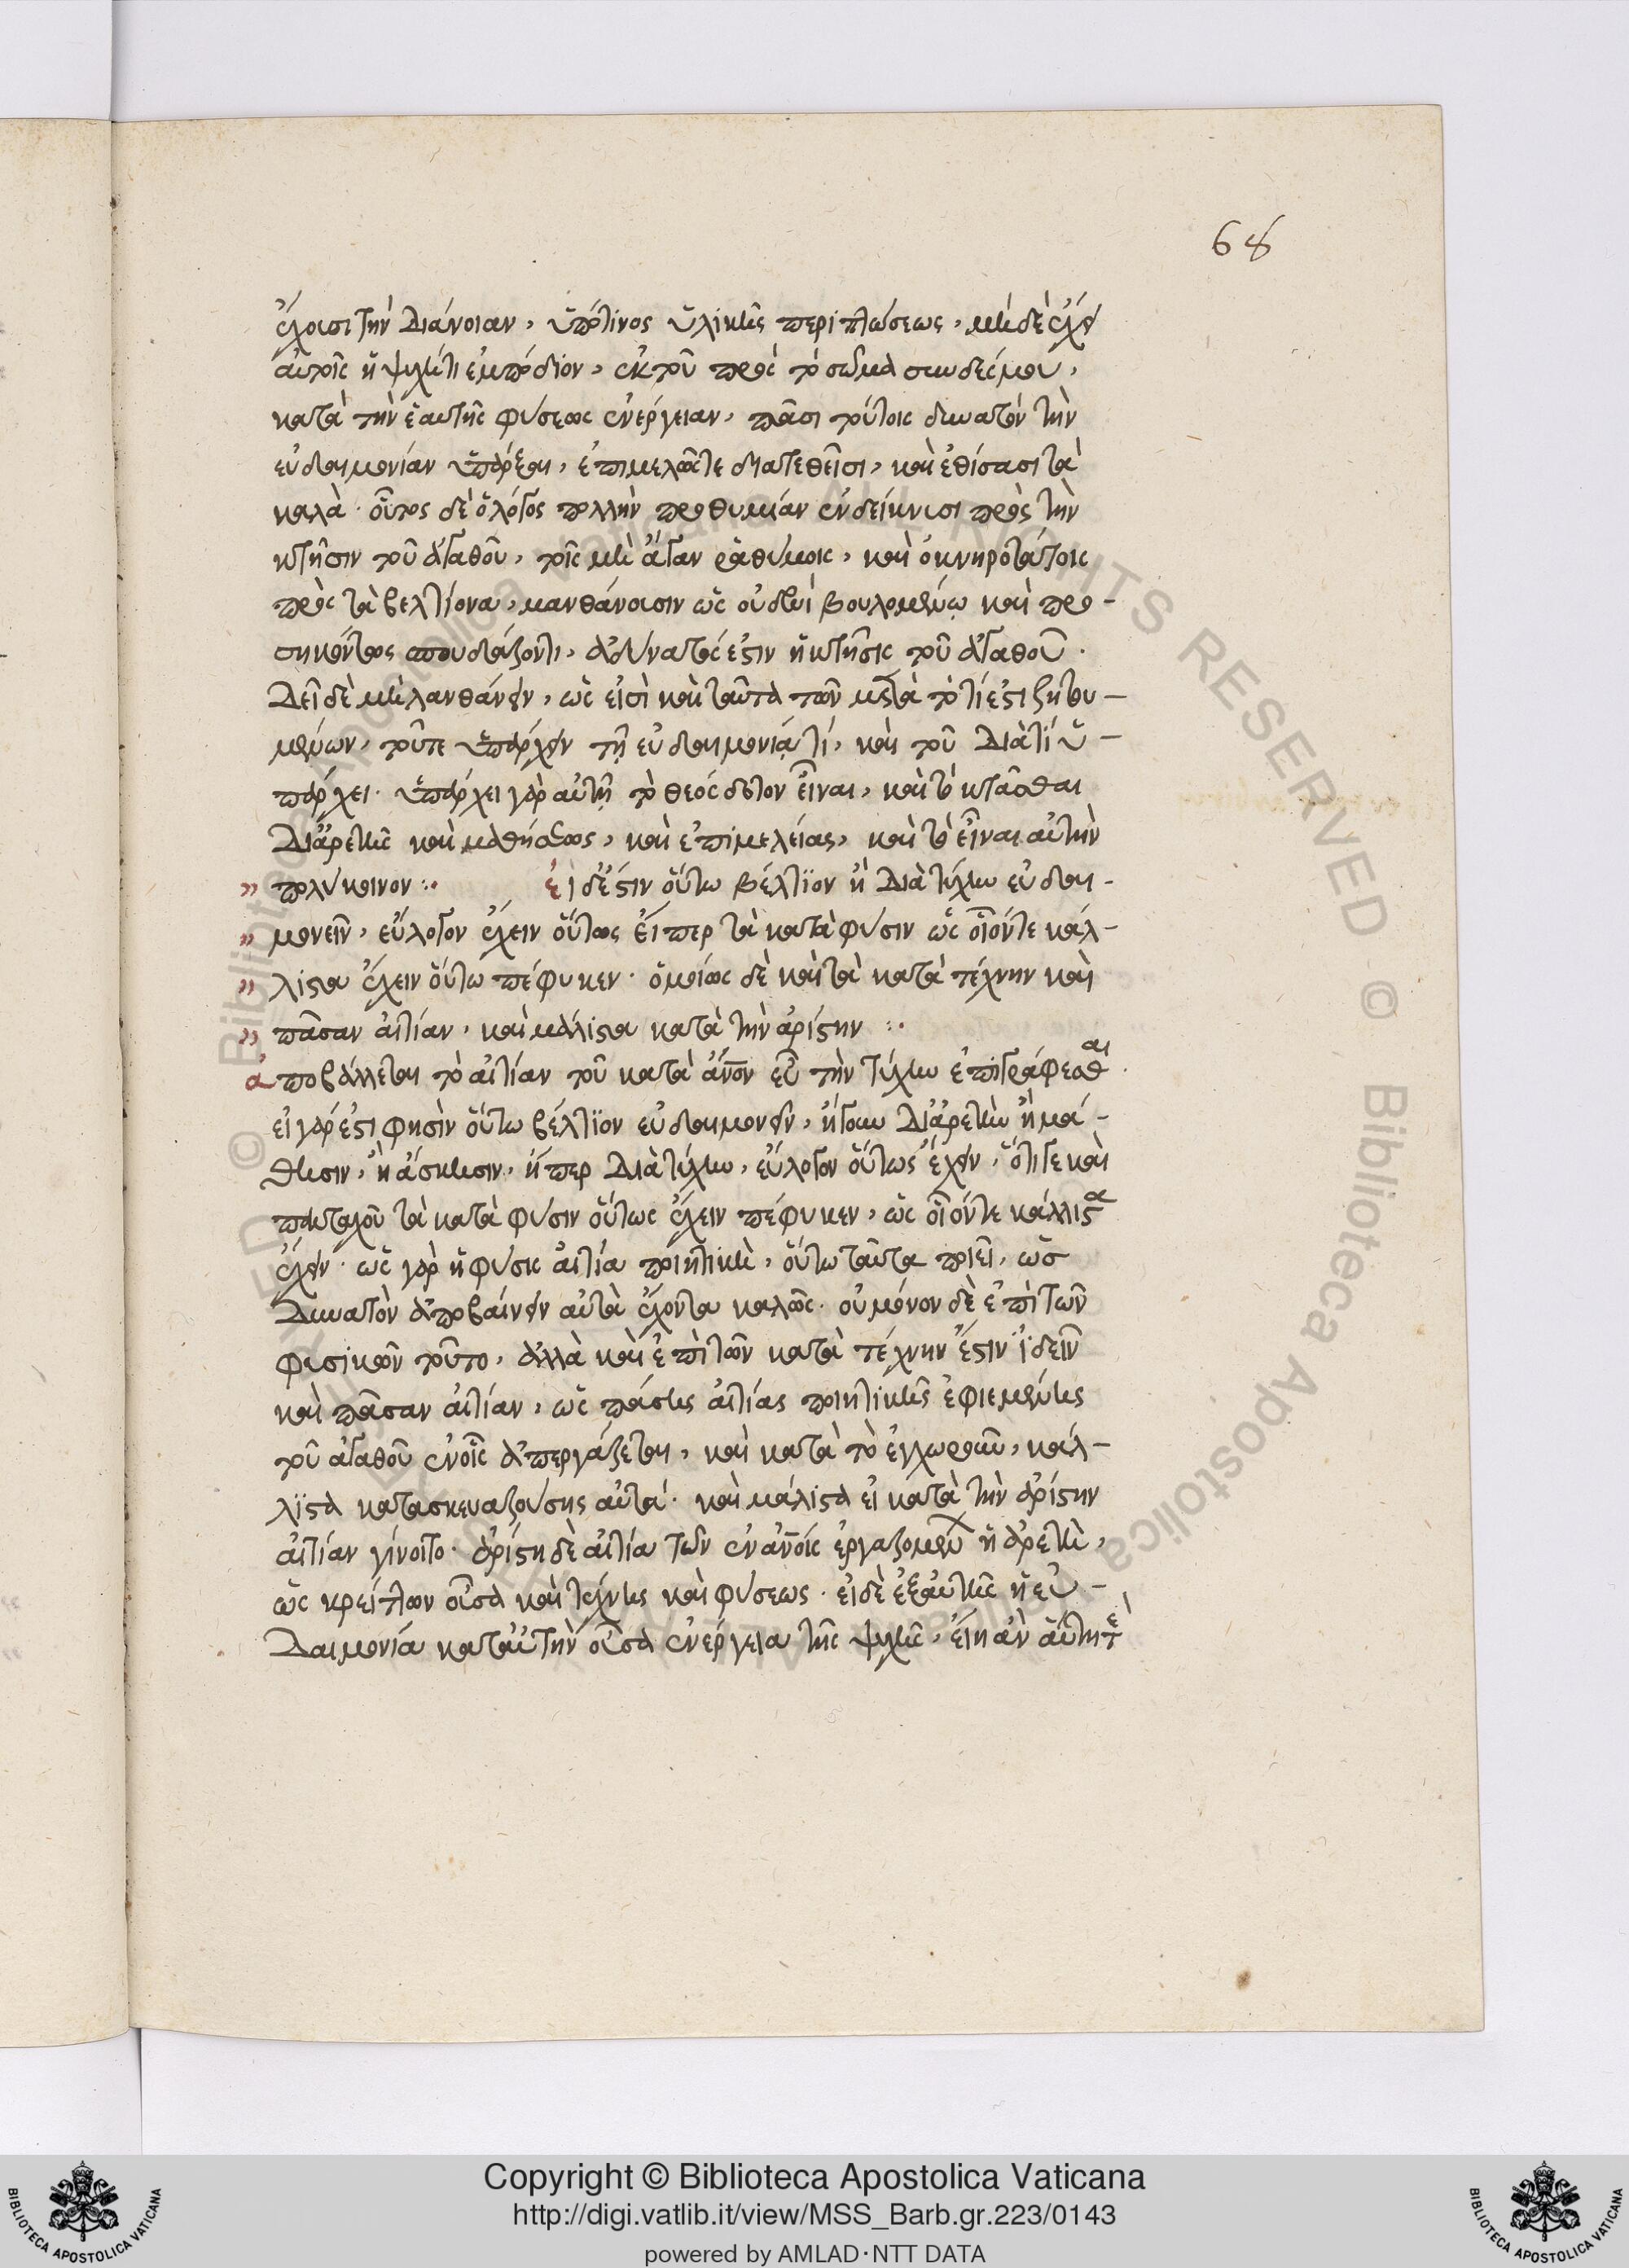 68
ἔχουσι τὴν διάνοιαν, ὑπό τινος ὑλικῆς περιπτώσεως, μὴ δὲ ἔχει
αὐτοῖς ἡ ψυχή τι ἐμπόδιον, ἐκ τοῦ πρὸς τὸ σῶμα συνδέσμου,
κατὰ τὴν ἑαυτῆς φύσεως ἐνέργειαν, πᾶσι τούτοις δυνατὸν τὴν
εὐδαιμονίαν ὑπάρξαι, ἐπιμελῶς τε διατεθεῖσι, καὶ ἐθίσασι τὰ
καλά· οὗτος δὲ ὁ λόγος πολλὴν προθυμίαν ἐνδείκνυσι πρὸς τὴν
κτῆσιν τοῦ ἀγαθοῦ, τοῖς μὴ ἄγαν ῥαθύμοις, καὶ ὀκνηροτάτοις
πρὸς τὰ βελτίονα, μανθάνουσιν ὡς οὐδενὶ βουλομένῳ καὶ προ-
σηκόντως σπουδάζοντι, ἀδύνατός ἐστιν ἡ κτῆσις τοῦ ἀγαθοῦ.
Δεῖ δὲ μὴ λανθάνειν, ὡς εἰσὶ καὶ ταῦτα τῶν μετὰ τὸ τί ἐστι ζητου-
μένων, τοῦ τε ὑπάρχειν τῇ εὐδαιμονίᾳ τί, καὶ τοῦ διὰ τί ὑ-
πάρχει· ὑπάρχει γὰρ αὐτῇ τὸ θεόσδοτον εἶναι, καὶ τὸ κτᾶσθαι
δι' ἀρετῆς καὶ μαθήσεως, καὶ ἐπιμελείας, καὶ τὸ εἶναι αὐτὴν
" πολύκοινον :· εἰ δ' ἔστιν οὕτω βέλτϊον ἢ διὰ τύχην εὐδαι-
" μονεῖν, εὔλογον ἔχειν οὕτως εἴπερ τὰ κατὰ φύσιν ὡς οἷόν τε κάλ-
" λιστα ἔχειν οὕτω πέφυκεν· ὁμοίως δὲ καὶ τὰ κατὰ τέχνην καὶ
" πᾶσαν αἰτίαν, καὶ μάλιστα κατὰ τὴν ἀρίστην :·
ἀποβάλλεται τὸ αἰτίαν τοῦ κατὰ ἄνον εὖ τὴν τύχην ἐπιγράφεσθαι.
εἰ γάρ ἐστι φησὶν οὕτω βέλτϊον εὐδαιμονεῖν, ἤγουν δι' ἀρετὴν ἢ μά-
θησιν, ἢ ἄσκησιν, ἤπερ διὰ τύχην, εὔλογον οὕτως ἔχειν, ὅτι γε καὶ
πανταχοῦ τὰ κατὰ φύσιν οὕτως ἔχειν πέφυκεν, ὡς οἷόν τε κάλλιστα
ἔχειν· ὡς γὰρ ἡ φύσις αἰτία ποιητικὴ, οὕτω ταῦτα ποιεῖ, ὡς
δυνατὸν ἀποβαίνειν αὐτὰ ἔχοντα καλῶς· οὐ μόνον δὲ ἐπὶ τῶν
φυσικῶν τοῦτο, ἀλλὰ καὶ ἐπὶ τῶν κατὰ τέχνην ἔστιν ἰδεῖν
καὶ πᾶσαν αἰτίαν, ὡς πάσης αἰτίας ποιητικῆς ἐφιεμένης
τοῦ ἀγαθοῦ ἐν οἷς ἀπεργάζεται, καὶ κατὰ τὸ ἐγχωροῦν, κάλ-
λϊστα κατασκευαζούσης αὐτά· καὶ μάλιστα εἰ κατὰ τὴν ἀρίστην
αἰτίαν γίνοιτο· ἀρίστη δὲ αἰτία τῶν ἐν ἀνοις ἐργαζομένων ἡ ἀρετὴ,
ὡς κρείττων οὖσα καὶ τέχνης καὶ φύσεως· εἰ δὲ ἐξ αὐτῆς ἡ εὐ-
δαιμονία κατ' αὐτὴν οὖσα ἐνέργεια τῆς ψυχῆς, εἴη ἂν αὕτη τε